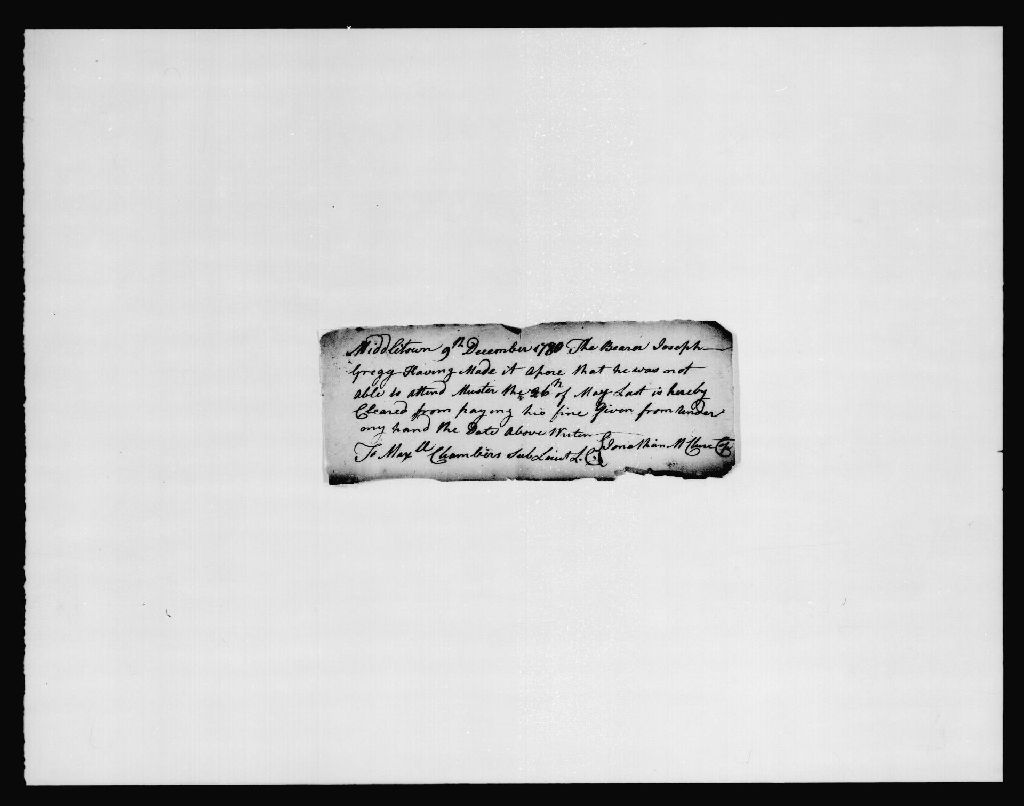 Middletown 9th December 1780 The Bearer Joseph
Gregg Having Made it apore that he was not
able to attend Muster the 26th of May Last is hereby
Cleared from paying his fine Given from under
my hand the Date above Writen
To Maxll Chambers Sub Lieut L. C. Jonathan McClure Cap